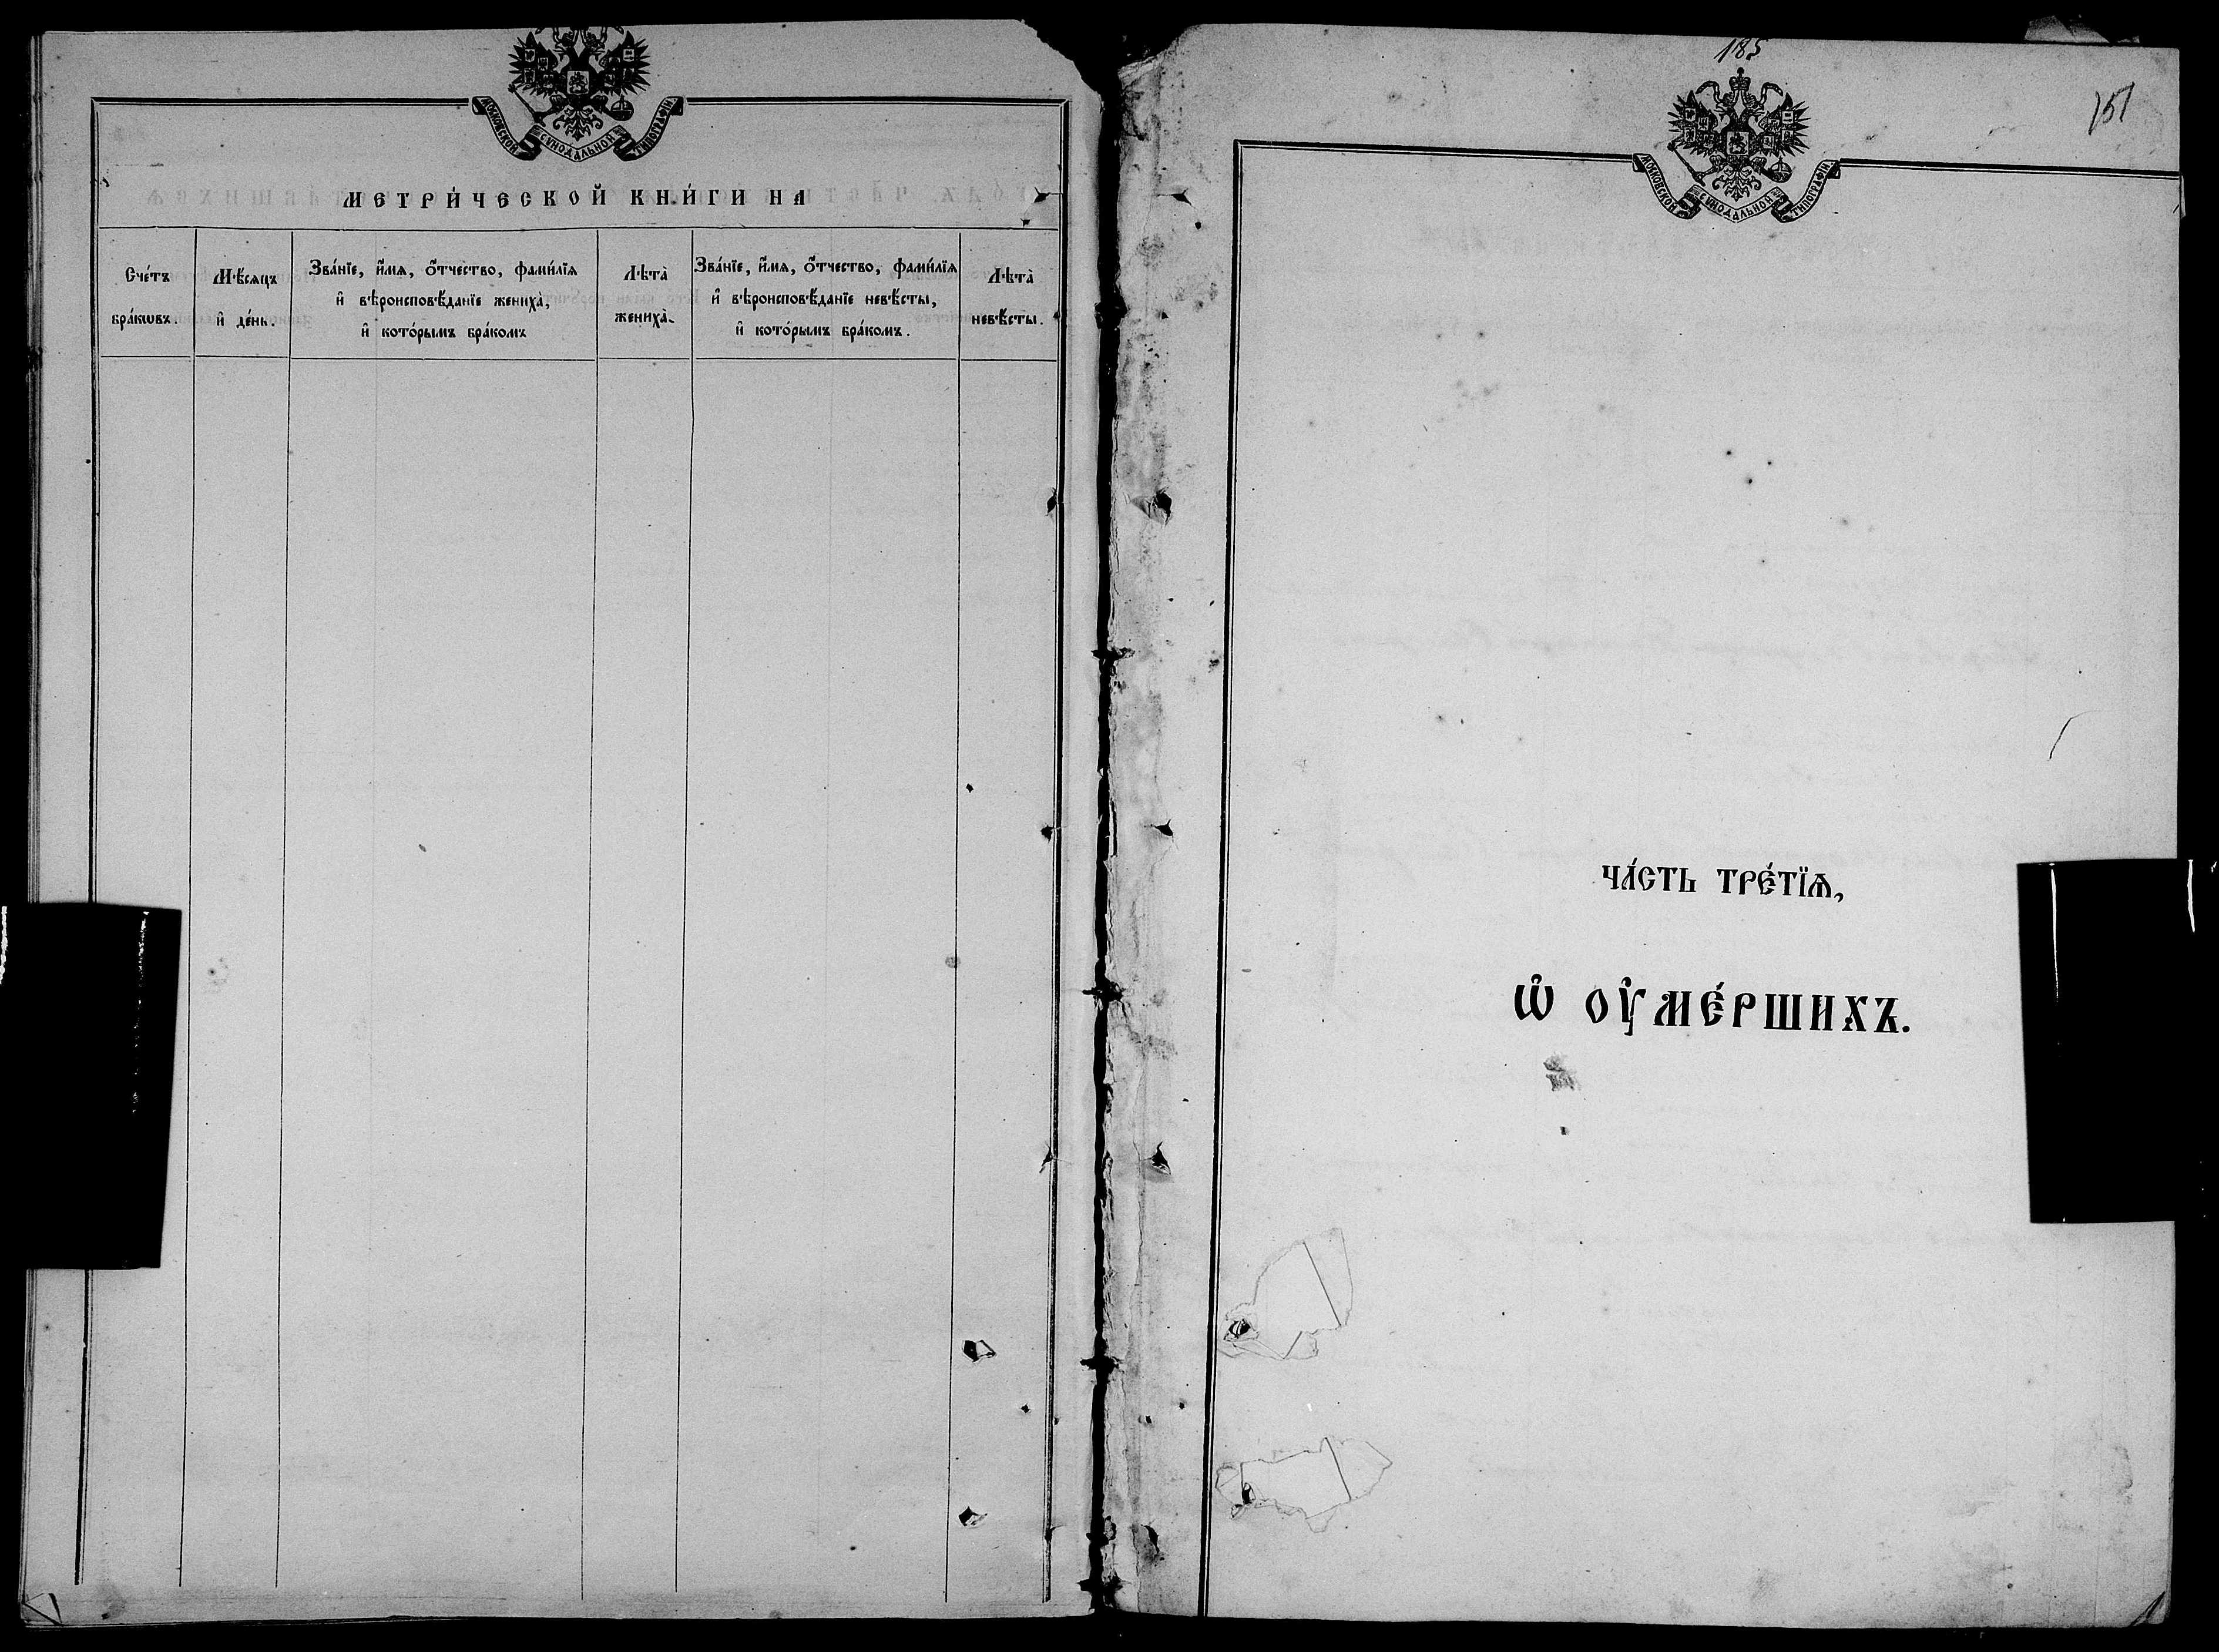 МОСКОВСКОЙ СѴНОДАЛЬНОЙ ТИПОГРАФІИ.
МЕТРИ́ЧЕСКОЙ КНИ́ГИ НА
Сче́тъ
бра́кѡвъ.
Мѣ́сяцъ
и҆ де́нь.
Зва́нїе, и҆́мѧ, ѻ҆́тчество, фами́лїѧ
и҆ вѣроисповѣ́данїе жениха̀,
и҆ кото́рымъ бра́комъ
Лѣта̀
жениха̀.
Зва́нїе, и҆́мѧ, ѻ҆́тчество, фами́лїѧ
и҆ вѣроисповѣ́данїе невѣ́сты,
и҆ кото́рымъ бра́комъ.
Лѣта̀
невѣ́сты.
185
151
МОСКОВСКОЙ СѴНОДАЛЬНОЙ ТИПОГРАФІИ.
ЧА́СТЬ ТРЕ́ТЇѦ,
Ѡ҆ ОУ҆МЕ́РШИХЪ.